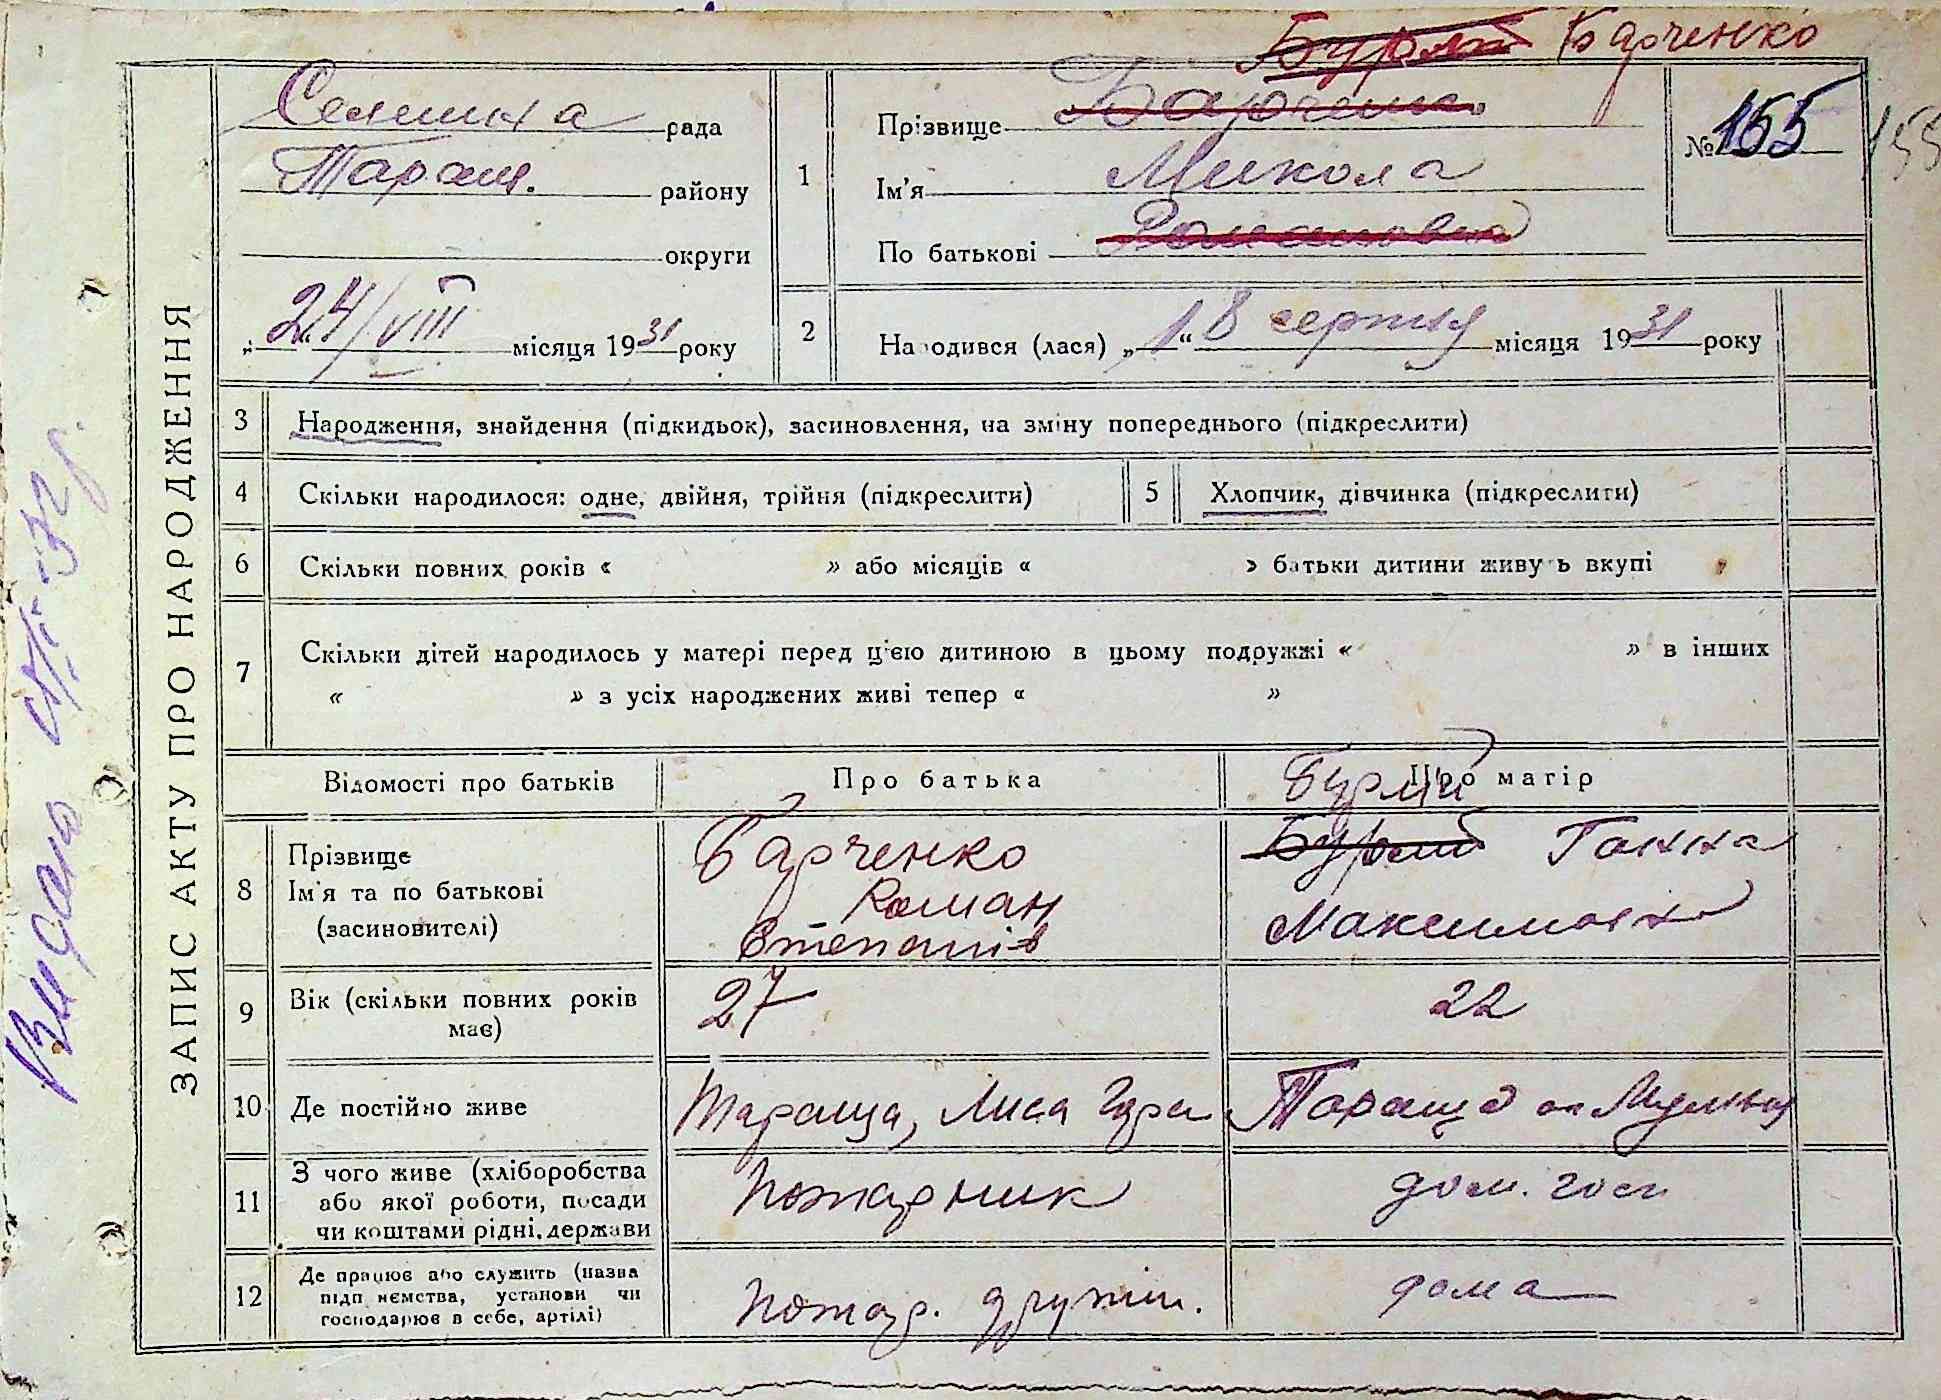 Барченко
Селешна рада
Таращ. району
округи
"24/VIII" місяця 1931 року
1
Прізвище Барченко
Ім'я Микола
По батькові
№ 155
155
2
Народився (лася) "18" серпня місяця 1931 року
ЗАПИС АКТУ ПРО НАРОДЖЕННЯ
3 Народження, знайдення (підкидьок), засиновлення, на зміну попереднього (підкреслити)
4 Скільки народилося: одне, двійня, трійня (підкреслити)
5 Хлопчик, дівчинка (підкреслити)
6 Скільки повних років « » або місяців « » батьки дитини живуть вкупі
7 Скільки дітей народилось у матері перед цією дитиною в цьому подружжі « » в інших
« » з усіх народжених живі тепер « »
Відомості про батьків Про батька Про матір
8 Прізвище
Ім'я та по батькові
(засиновителі)
Барченко
Роман
Степанів
Ганна
9 Вік (скільки повних років
має)
27
22
10 Де постійно живе
Тараща, Лиса Гора
Тараща
11 З чого живе (хліборобства
або якої роботи, посади
чи коштами рідні, держави
Пожарник
дом. госп
12 Де працює або служить (назва
підприємства, установи чи
господарює в себе, артілі)
Пожар. дружин.
дома
Видано